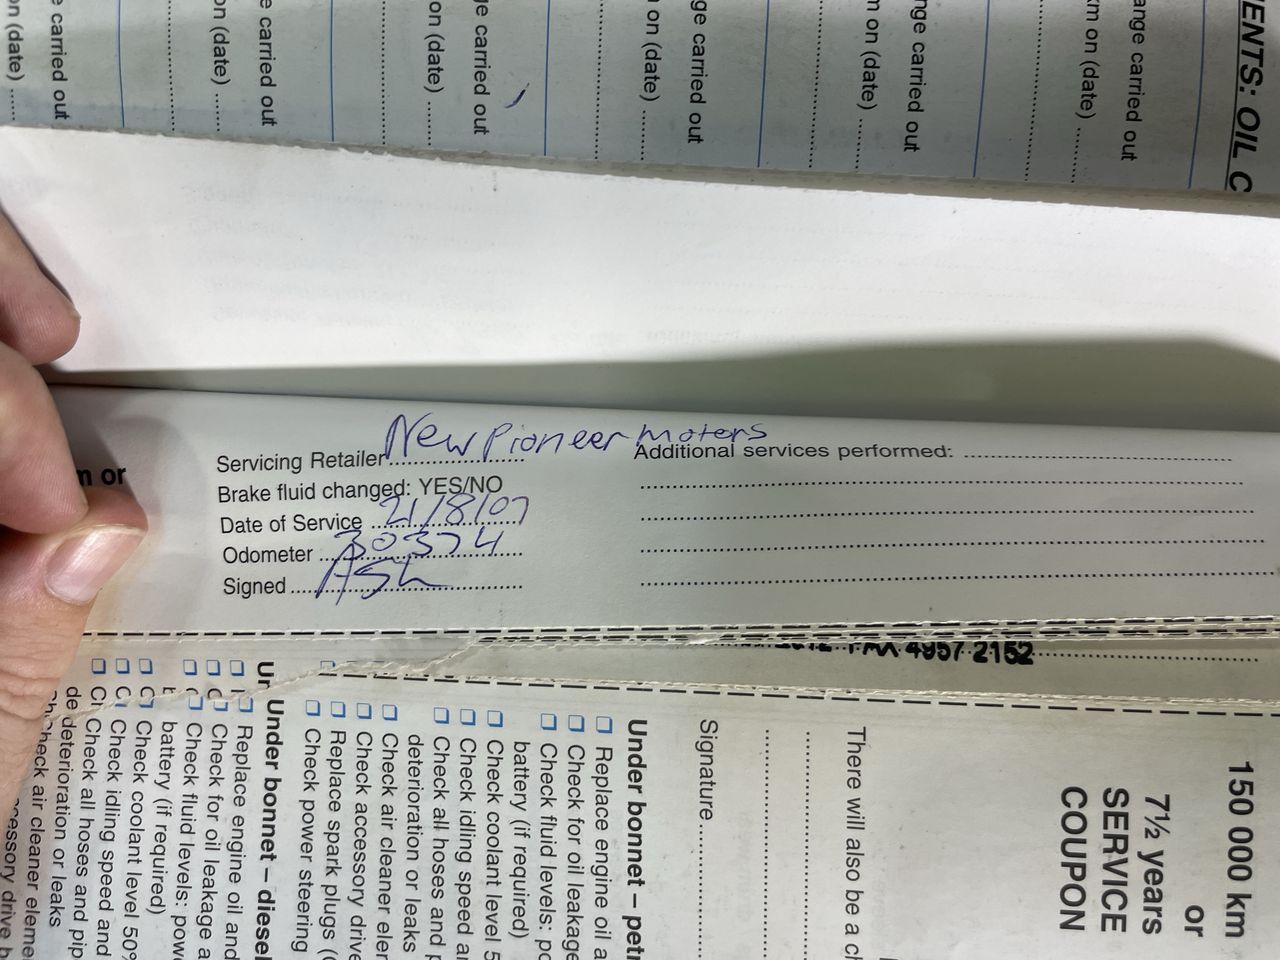 ge carried out
on (date) ......
e carried out
on (date) ......
ge carried out
on (date) ......
ge carried out
on (date) ......
nge carried out
m on (date) ......
ange carried out
km on (date) ......
ENTS: OIL C
n or
Servicing Retailer New Pioneer Motors
Brake fluid changed: YES/NO
Date of Service 21/8/07
Odometer 30374
Signed ASh
Additional services performed:
4957 2152
150 000 km
or
7½ years
SERVICE
COUPON
There will also be a ch
Signature
Under bonnet – petr
Replace engine oil a
Check for oil leakage
Check fluid levels: po
battery (if required)
Check coolant level 5
Check idling speed a
Check all hoses and p
deterioration or leaks
Check air cleaner eler
Check accessory drive
Replace spark plugs (
Check power steering
Under bonnet – diesel
Replace engine oil and
Check for oil leakage a
Check fluid levels: pow
battery (if required)
Check coolant level 50%
Check idling speed and
Check all hoses and pip
deterioration or leaks
heck air cleaner eleme
cessory drive b